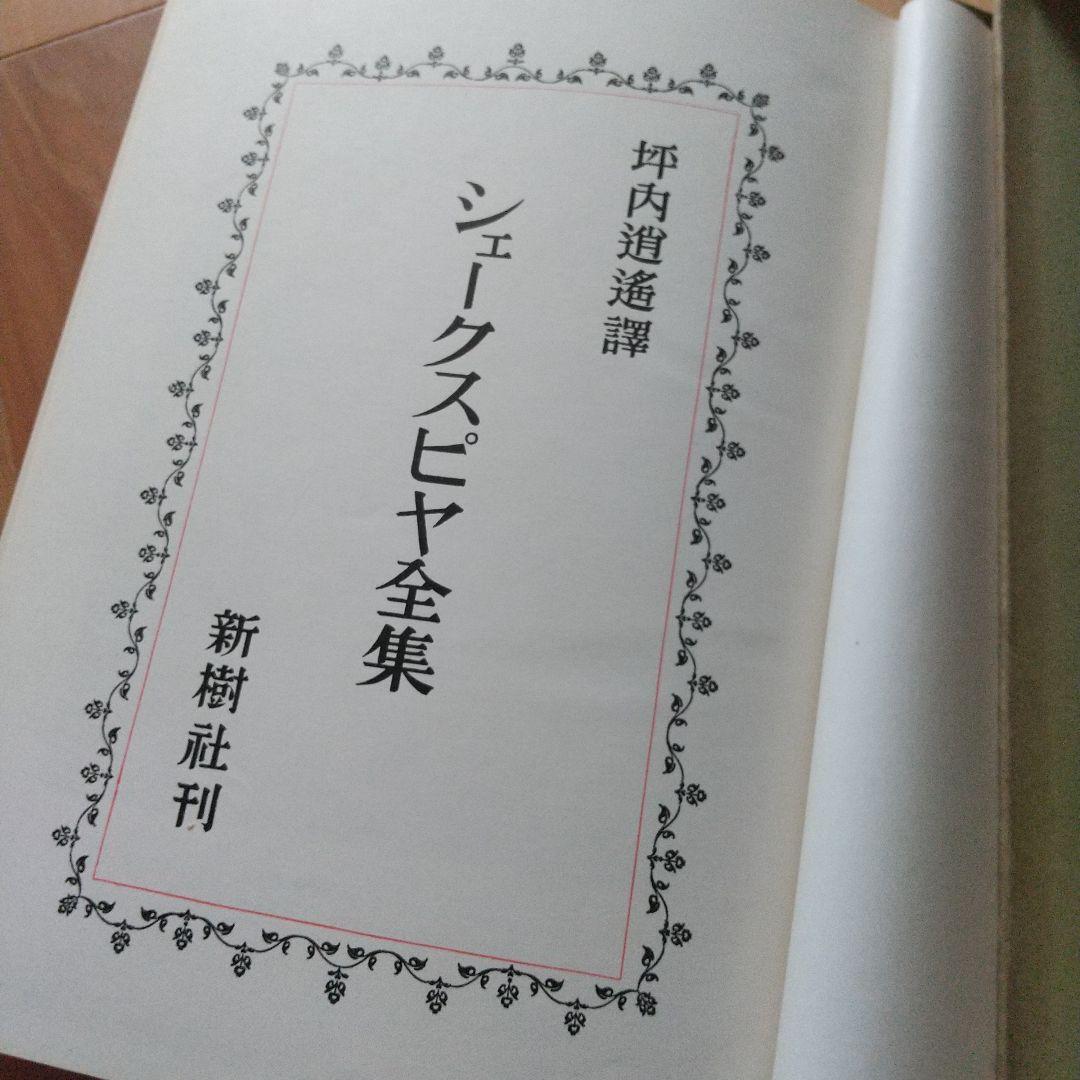 坪内逍遙譯
シェークスピヤ全集
新樹社刊